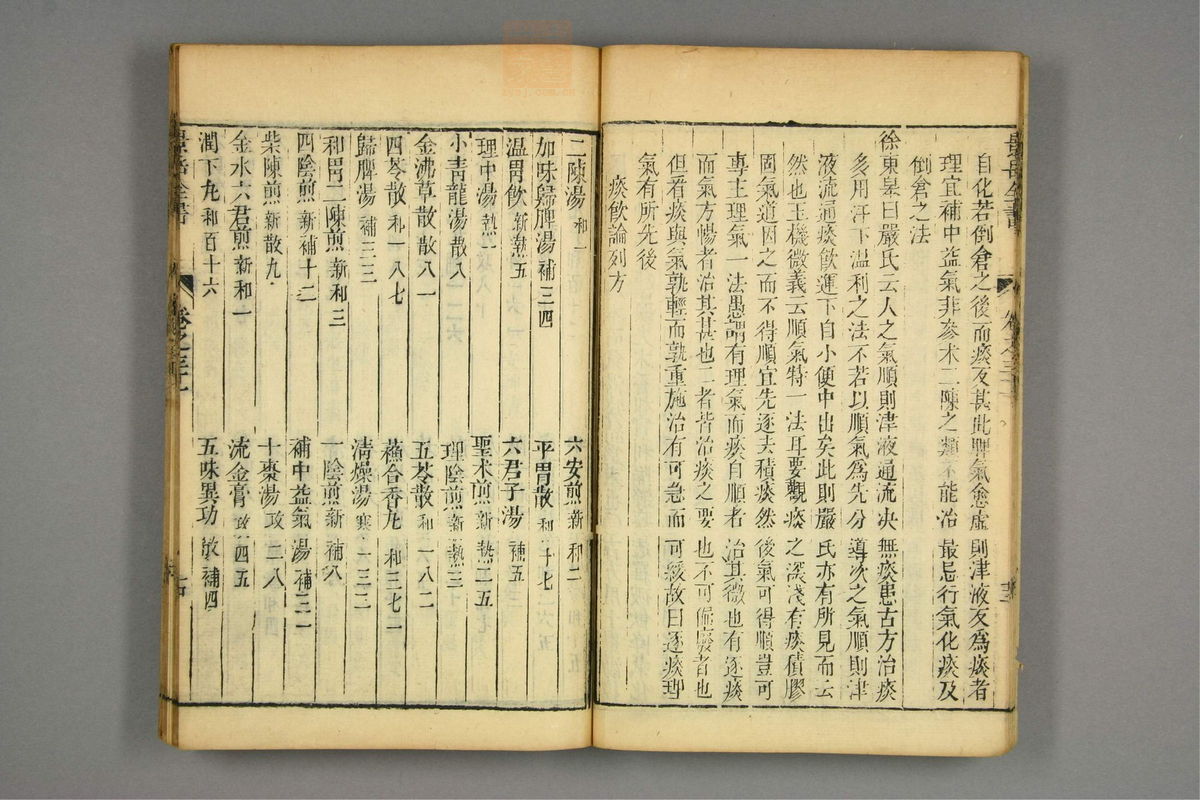 自化若倒倉之後而痰反甚此脾氣愈虛則津液反為痰者
理宜補中益氣非參术二陳之類不能治最忌行氣化痰及
倒倉之法
徐東皋曰嚴氏云人之氣順則津液通流决無痰患古方治痰
多用汗下温利之法不若以順氣為先分導次之氣順則津
液流通痰飲運下自小便中出矣此則嚴氏亦有所見而云
然也玉機微義云順氣特一法耳要觀痰之深淺有痰積膠
固氣道因之而不得順宜先逐去積痰然後氣可得順豈可
專主理氣一法愚謂有理氣而痰自順者治其微也有逐痰
而氣方暢者治其甚也二者皆治痰之要也不可偏廢者也
但看痰與氣孰輕而孰重施治有可急而可緩故曰逐痰理
氣有所先後
痰飲論列方
二陳湯 和一 六安煎 新和二
加味歸脾湯 補三四 平胃散 和十七
温胃飲 新熱五 六君子湯 補五
理中湯 熱一 聖术煎 新熱二五
小青龍湯 散八 理陰煎 新熱三
金沸草散 散八一 五苓散 和一八二
四苓散 和一八七 蘇合香丸 和三七二
歸脾湯 補三三 清燥湯 寒一三三
和胃二陳煎 新和三 一陰煎 新補八
四陰煎 新補十二 補中益氣湯 補三一
柴陳煎 新散九 十棗湯 攻二八
金水六君煎 新和一 流金膏 攻四五
潤下丸 和百十六 五味異功散 補四
景岳全書 卷之三十一